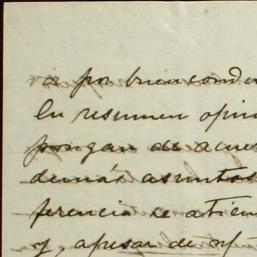 por buen condu
En resumen opin
pongan de acuer
demás asuntos
ferencia se atien
y, apesar de